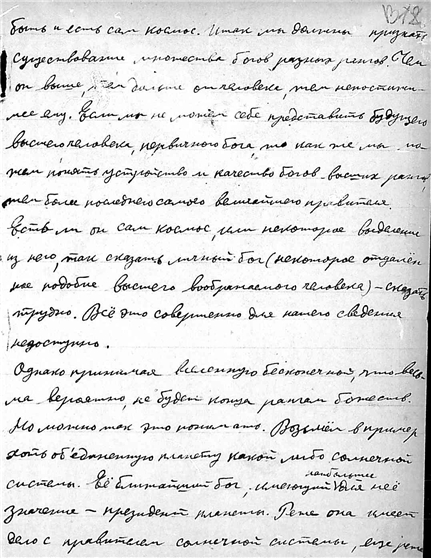 быть и есть сам космос. Итак мы должны признать
существование множества богов разных рангов. Чем
он выше, тем дальше от человека тем непостижи-
мее ему. Если мы не можем себе представить будущего
высшего человека, первичного бога, то как же мы мо-
жем понять устройство и качество богов высших рангов,
тем более последнего самого величайшего правителя.
Есть ли он сам космос, или некоторое выделение
из него, так сказать личный бог (некоторое отдалён-
ное подобие высшего воображаемого человека) – сказать
трудно. Всё это совершенно для нашего сведения
недоступно.
Однако принимая вселенную бесконечной, что весь-
ма вероятно, не будет конца рангам божеств.
Но можно так это понимать. Возьмём в пример
хоть объединенную планету какой либо солнечной
наибольшее
системы. Её ближайший бог, имеющий для неё
значение – президент планеты. Реже она имеет
дело с правителем солнечной системы, еще реже